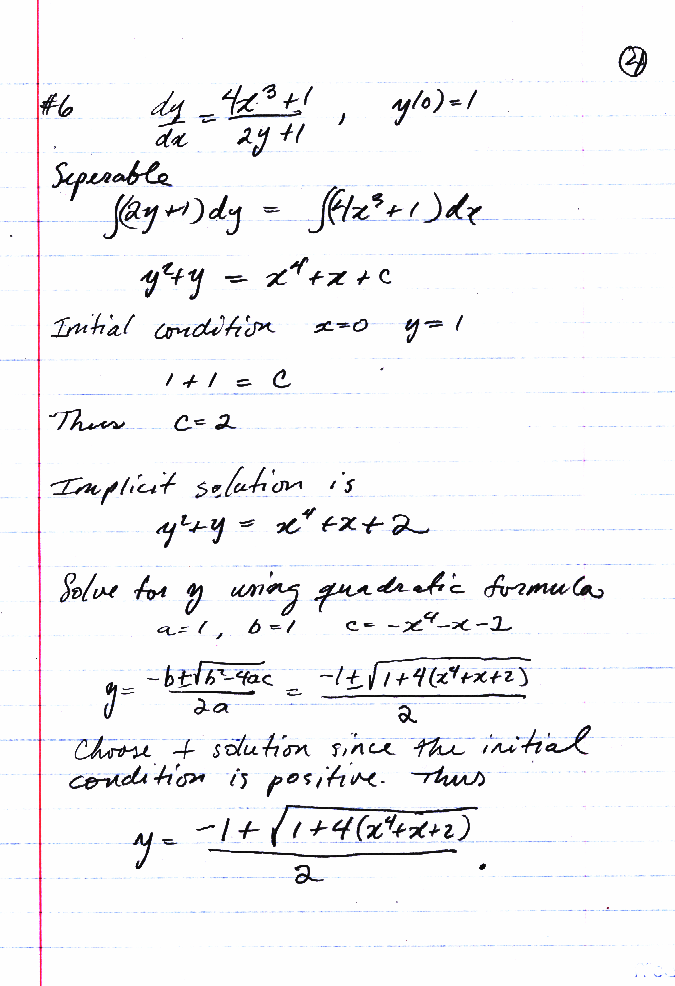 ②
#6 dy/dx = (4x³+1)/(2y+1) , y(0)=1
Seperable
∫(2y+1)dy = ∫(4x³+1)dx
y²+y = x⁴+x+c
Initial condition x=0 y=1
1+1 = C
Thus C=2
Implicit solution is
y²+y = x⁴+x+2
Solve for y using quadratic formula
a=1, b=1 c= -x⁴-x-2
y = (-b±√(b²-4ac))/2a = (-1±√(1+4(x⁴+x+2)))/2
Choose + solution since the initial
condition is positive. Thus
y = (-1+√(1+4(x⁴+x+2)))/2 .